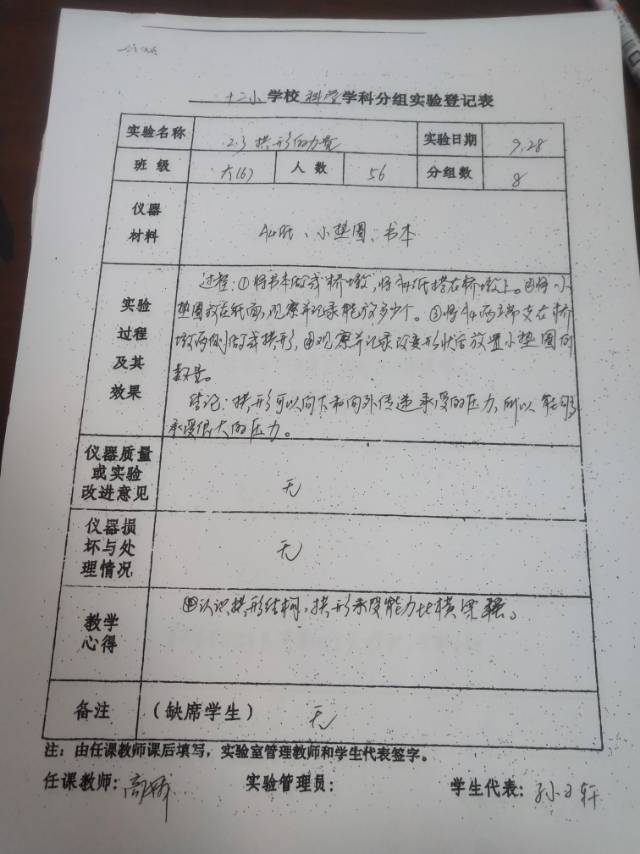 十二小学校科学学科分组实验登记表
实验名称 2.3 拱形的力量 实验日期 9.28
班级 六(6) 人数 56 分组数 8
仪器材料 A4纸、小垫圈、书本
实验过程及其效果
过程:①将书本做成桥墩,将A4纸搭在桥墩上。②将小
垫圈放在纸面,观察并记录能放多少个。③将A4两端支在桥
墩两侧做成拱形,④观察并记录改变形状后放置小垫圈的
数量。
结论:拱形可以向下和向外传递承受的压力,所以能够
承受很大的压力。
仪器质量或实验改进意见 无
仪器损坏与处理情况 无
教学心得 认识拱形结构,拱形承受能力比横梁强。
备注 (缺席学生) 无
注:由任课教师课后填写,实验室管理教师和学生代表签字。
任课教师:高 实验管理员: 学生代表:孙 轩